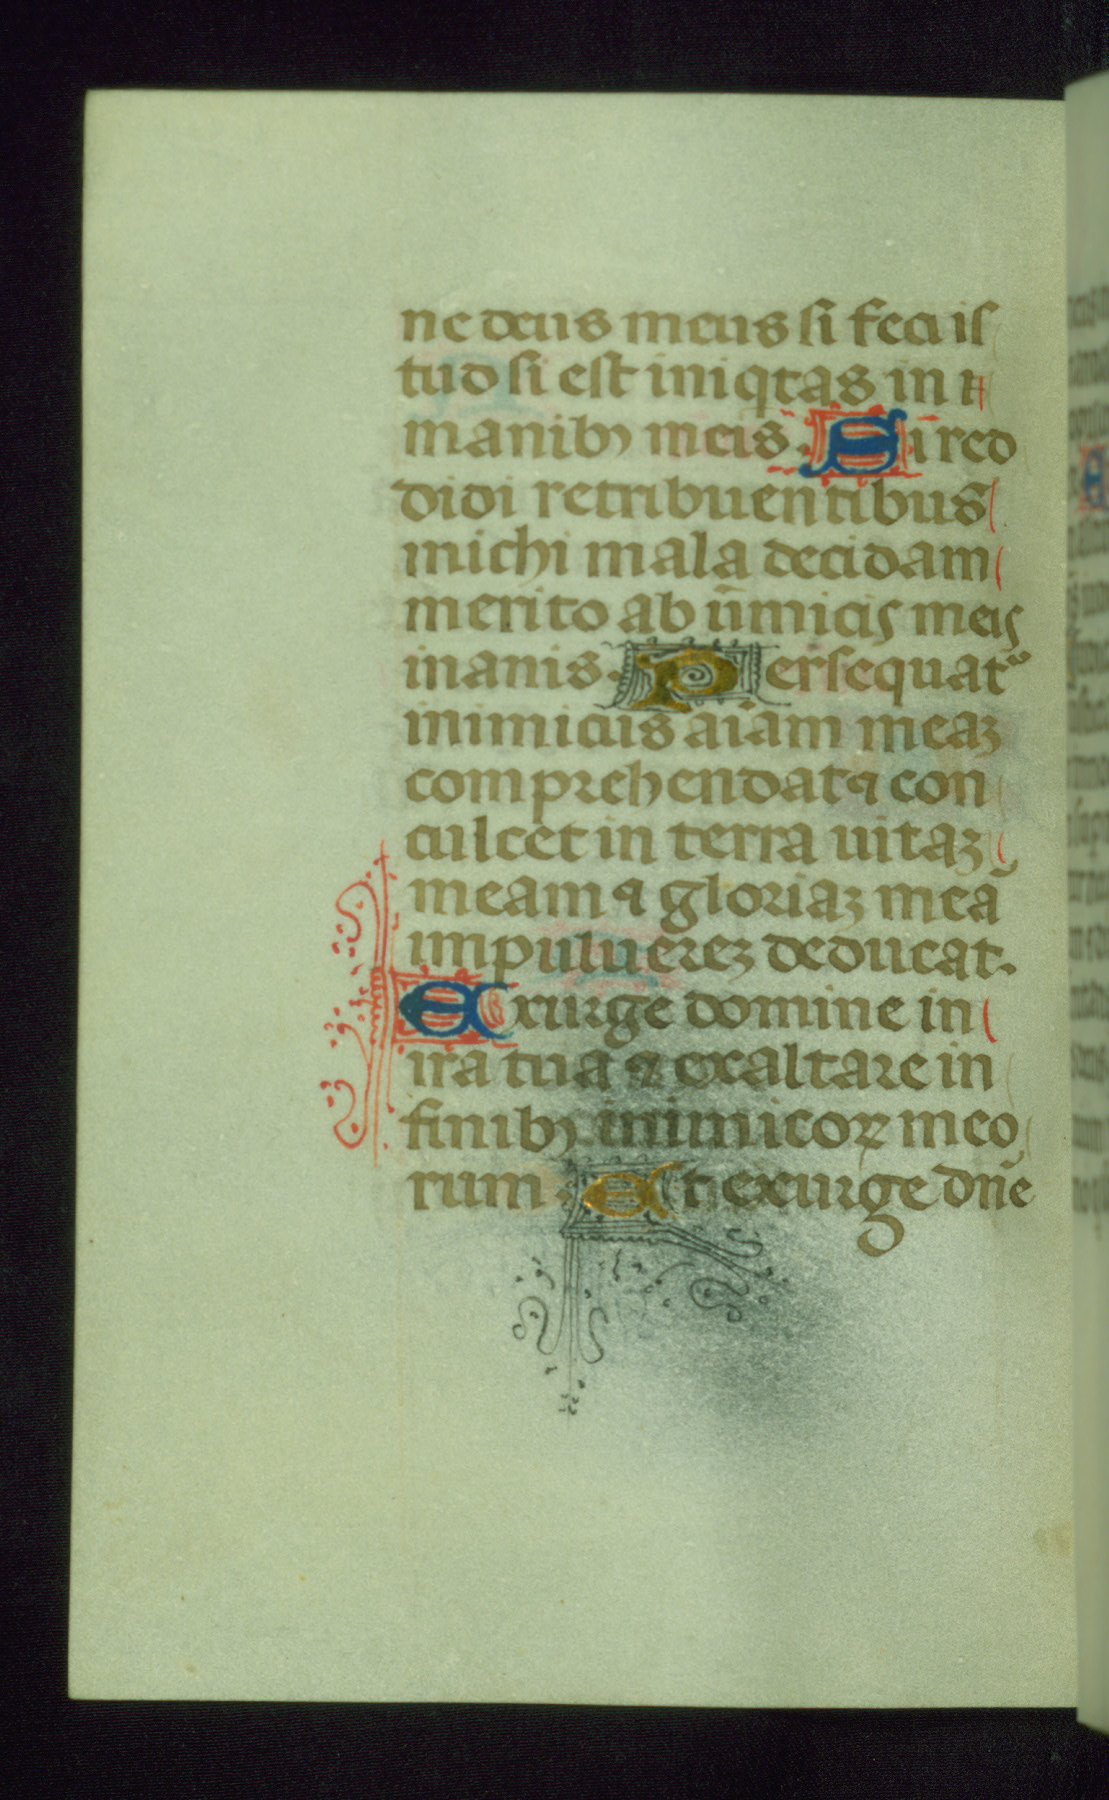 ne deus meus si feci is
tud si est iniqtas in
manibꝫ meis. Si red
didi retribuentibus
michi mala decidam
merito ab inimicis meis
inanis. Persequatᷣ
inimicus aīam meaꝫ
comprehendat ⁊ con
culcet in terra uitaꝫ
meam ⁊ gloriaꝫ meā
in puluereꝫ deducat.
Exurge domine in
ira tua ⁊ exaltare in
finibꝫ inimicoꝝ meo
rum. Et exurge dn̄e